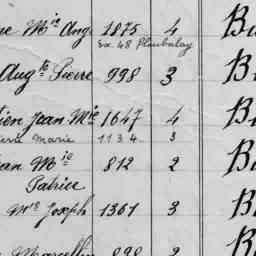 ne Mie Ange 1875 4 B
Ex. 48 Pleubalay
Augte Pierre 998 3 B
ien Jean Mie 1647 4 B
Marie 1134 3
an Mie 812 2 B
Patrice
Mie Joseph 1361 3 B
Marcellin 898 2 B